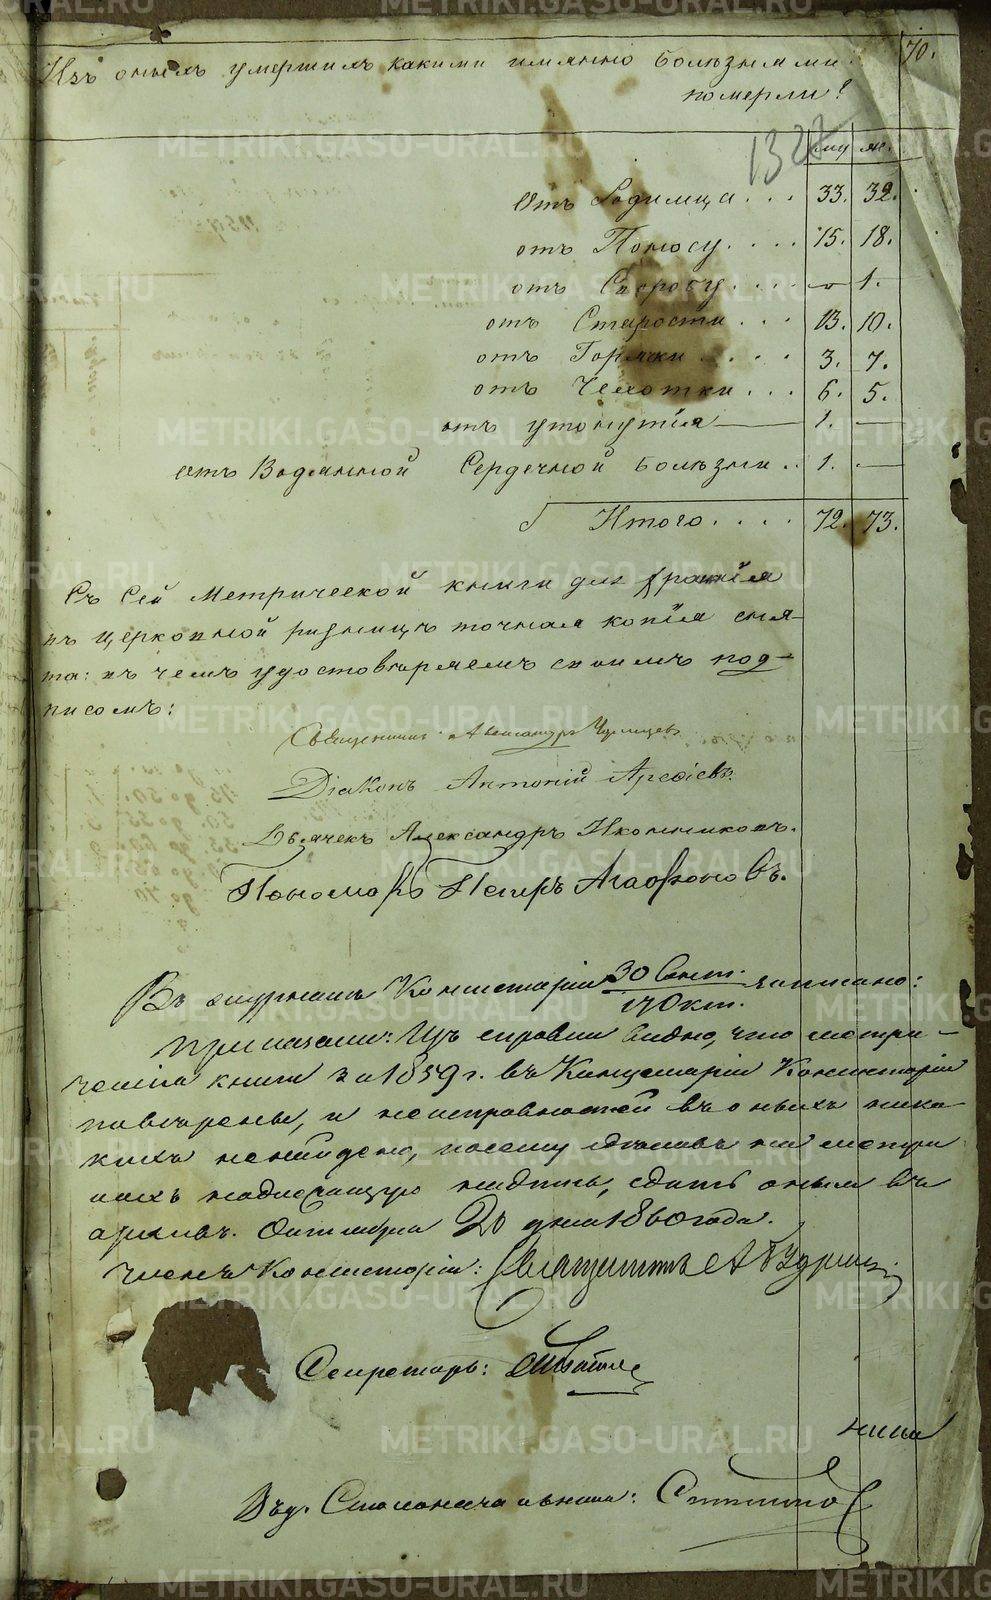 Изъ оныхъ умершихъ какими имянно болѣзнями 70.
померли?
1327
му ж.
Отъ Родимца . . . 33. 32.
отъ Поносу . . . . 15. 18.
отъ . . . . — 1.
отъ Старости . . . 13. 10.
отъ Горячки . . . . 3. 7.
отъ Чехотки . . . 6. 5.
отъ утонутія — 1. —
отъ Водянной Сердечной Болѣзни . . 1. —
Итого . . . . 72. 73.
Съ Сей Метрической книги для храненія
въ церковной ризницѣ точная копія сня-
та: въ чемъ удостовѣряемъ своимъ под-
писомъ:
Священникъ Александръ
Діаконъ Антоній Арефіевъ.
Дьячекъ Александръ Иконниковъ.
Пономарь Петръ Агафоновъ.
Въ журналѣ Консисторіи 30 Сент. записано:
17 Окт.
Приказали: Изъ справки видно, что метри-
ческія книги за 1859 г. въ Канцеляріи Консисторіи
повѣрены, и неисправностей въ оныхъ ника-
кихъ ненайдено, посему сдѣлавъ на метри
кахъ надлежащую надпись, сдать оныя въ
архивъ. Октября 20 дня 1860 года.
Членъ Консисторіи: Священникъ
Секретарь:
Въд. Столоначальника: